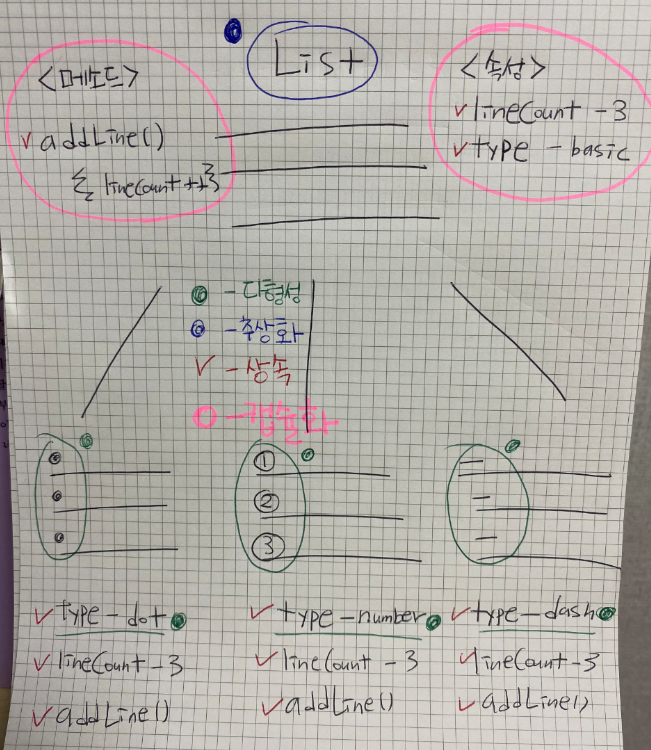 List
<메소드>
addLine()
{ lineCount++}
<속성>
lineCount - 3
type - basic
- 다형성
- 추상화
✓ - 상속
- 캡슐화
①
②
③
✓ type - dot
✓ lineCount - 3
✓ addLine()
✓ type - number
✓ lineCount - 3
✓ addLine()
✓ type - dash
✓ lineCount - 3
✓ addLine()